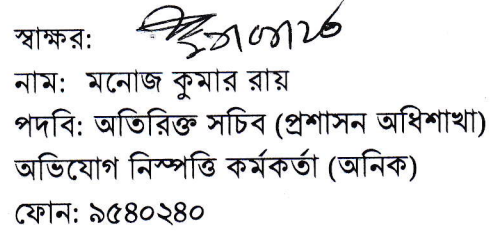 স্বাক্ষর:
নাম: মনোজ কুমার রায়
পদবি: অতিরিক্ত সচিব (প্রশাসন অধিশাখা)
অভিযোগ নিস্পত্তি কর্মকর্তা (অনিক)
ফোন: ৯৫৪০২৪০